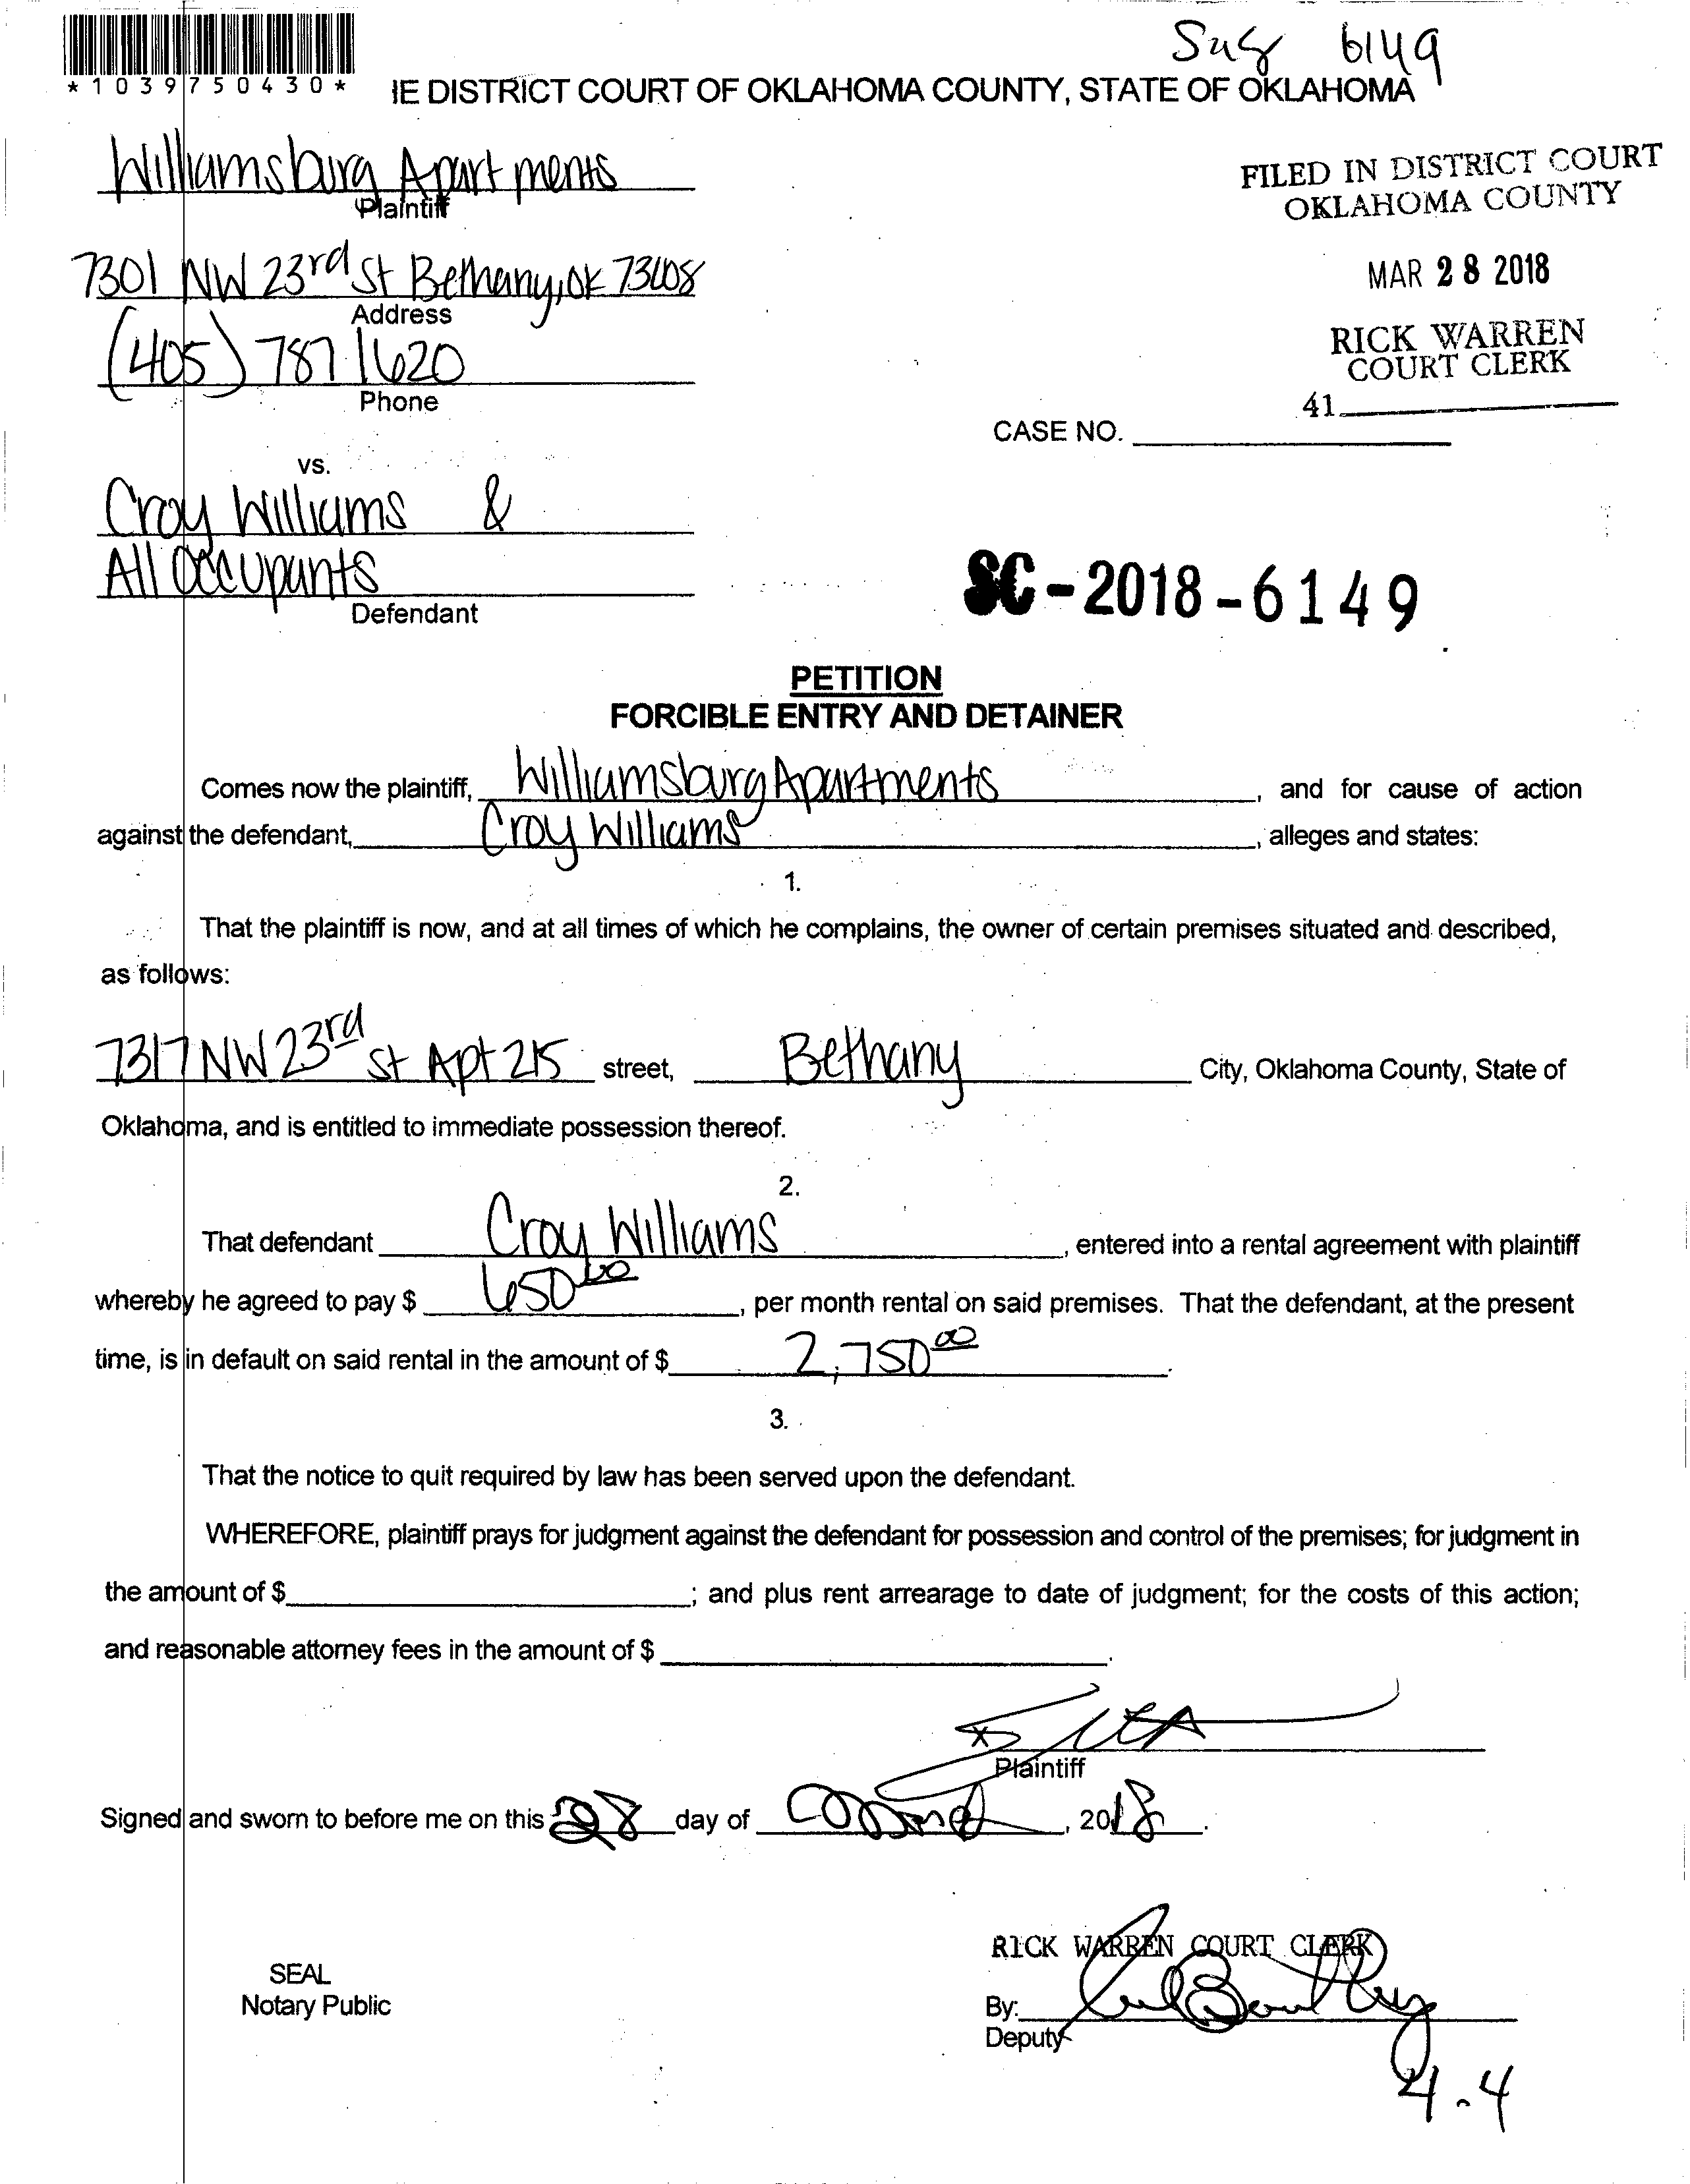 Suz 6149
*1039750430*
IE DISTRICT COURT OF OKLAHOMA COUNTY, STATE OF OKLAHOMA
Williamsburg Apartments
Plaintiff
FILED IN DISTRICT COURT
OKLAHOMA COUNTY
7301 NW 23rd St Bethany, OK 73008
Address
MAR 28 2018
(405) 787 1620
Phone
RICK WARREN
COURT CLERK
41
CASE NO.
vs.
Croy Williams &
All Occupants
Defendant
SC-2018-6149
PETITION
FORCIBLE ENTRY AND DETAINER
Comes now the plaintiff, Williamsburg Apartments, and for cause of action
against the defendant, Croy Williams, alleges and states:
1.
That the plaintiff is now, and at all times of which he complains, the owner of certain premises situated and described,
as follows:
7317 NW 23rd St Apt 215 street, Bethany City, Oklahoma County, State of
Oklahoma, and is entitled to immediate possession thereof.
2.
That defendant Croy Williams, entered into a rental agreement with plaintiff
whereby he agreed to pay $ 650 00, per month rental on said premises. That the defendant, at the present
time, is in default on said rental in the amount of $ 2,750 00.
3.
That the notice to quit required by law has been served upon the defendant.
WHEREFORE, plaintiff prays for judgment against the defendant for possession and control of the premises; for judgment in
the amount of $ ; and plus rent arrearage to date of judgment; for the costs of this action;
and reasonable attorney fees in the amount of $ .
X
Plaintiff
Signed and sworn to before me on this 28 day of March, 2018.
RICK WARREN COURT CLERK
SEAL
Notary Public
By:
Deputy
4.4